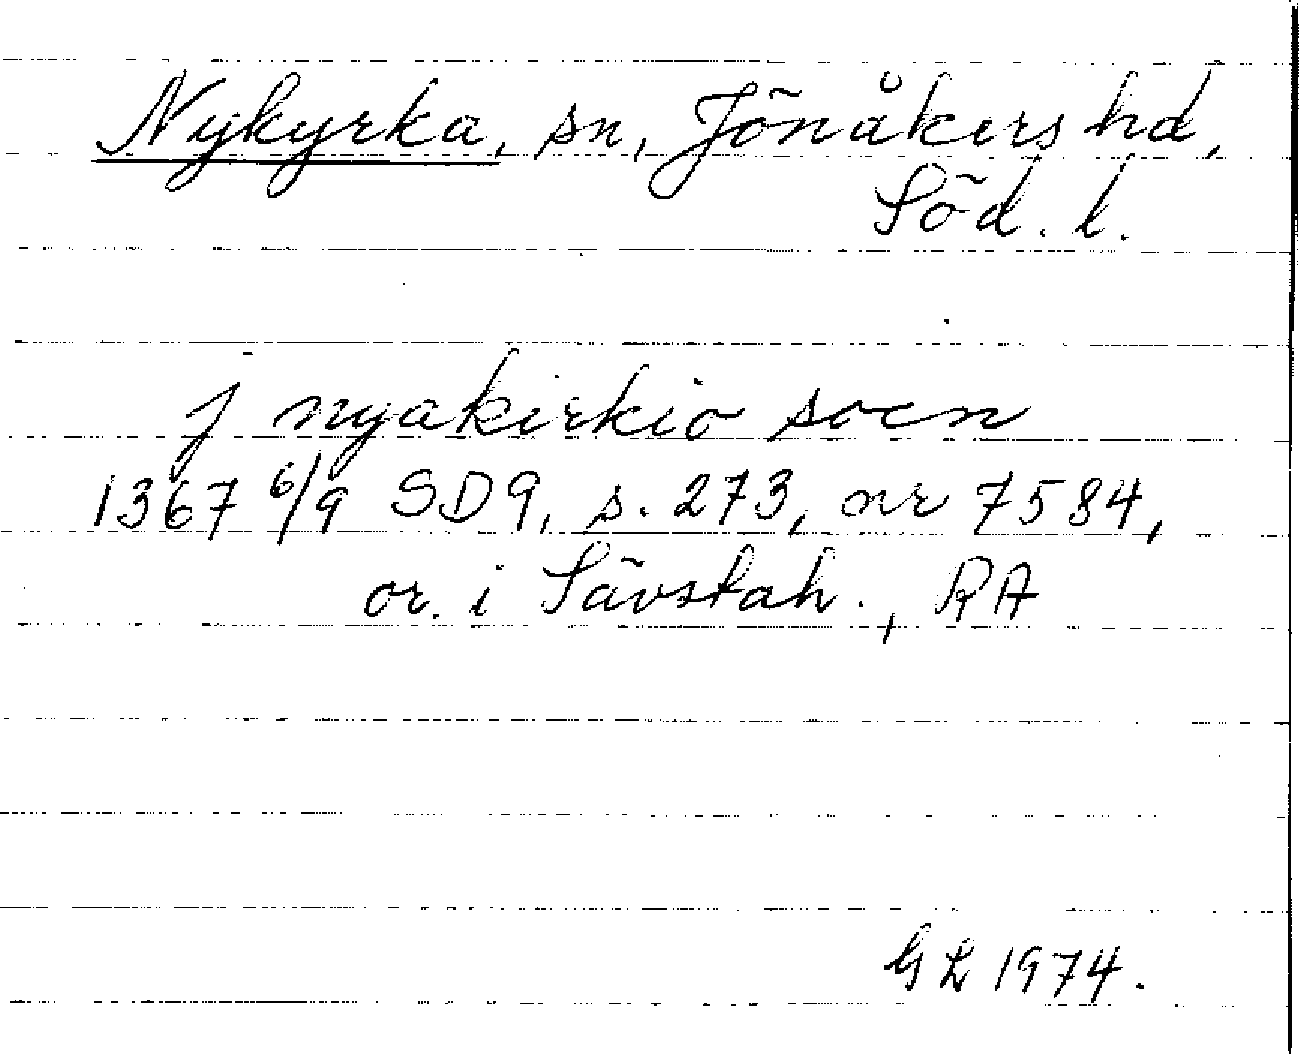 Nykyrka, sn, Jönåkers hd,
Söd. l.
j nyakirkio socn
1367 6/9 SD9, s. 273, nr 7584,
or. i Sävstah., RA
GL 1974.